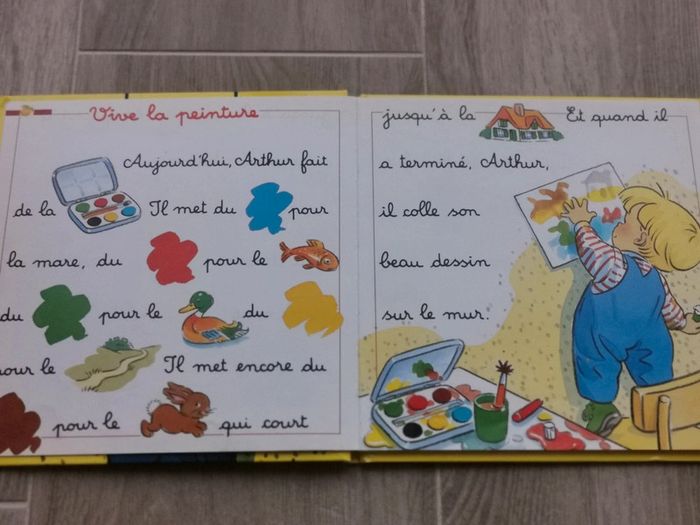 Vive la peinture
Aujourd'hui, Arthur fait
de la Il met du pour
la mare, du pour le
du pour le du
pour le Il met encore du
pour le qui court
jusqu'à la Et quand il
a terminé, Arthur,
il colle son
beau dessin
sur le mur.